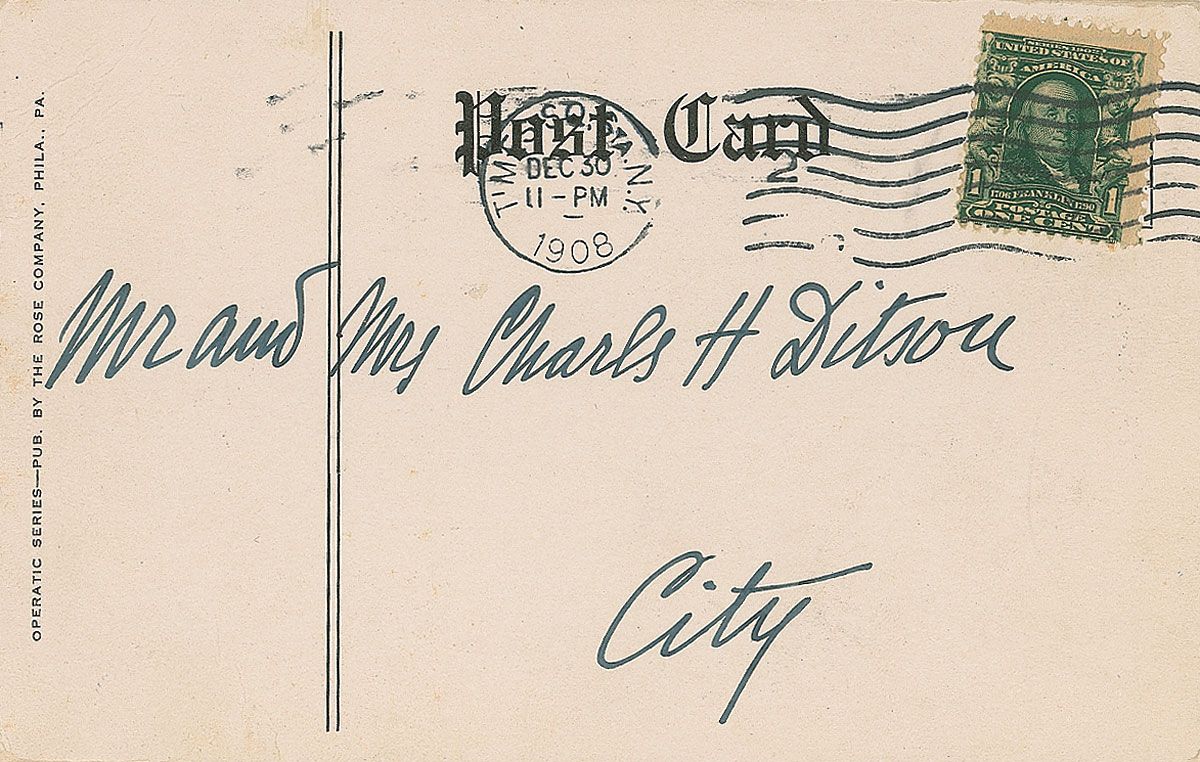 OPERATIC SERIES—PUB. BY THE ROSE COMPANY, PHILA., PA.
Post Card
TIMES SQ. STA. N.Y.
DEC 30
11-PM
1908
2
SERIES 1902
UNITED STATES OF
AMERICA
1706 FRANKLIN 1790
POSTAGE
1 ONE CENT 1
Mr and Mrs Charls H Ditson
City